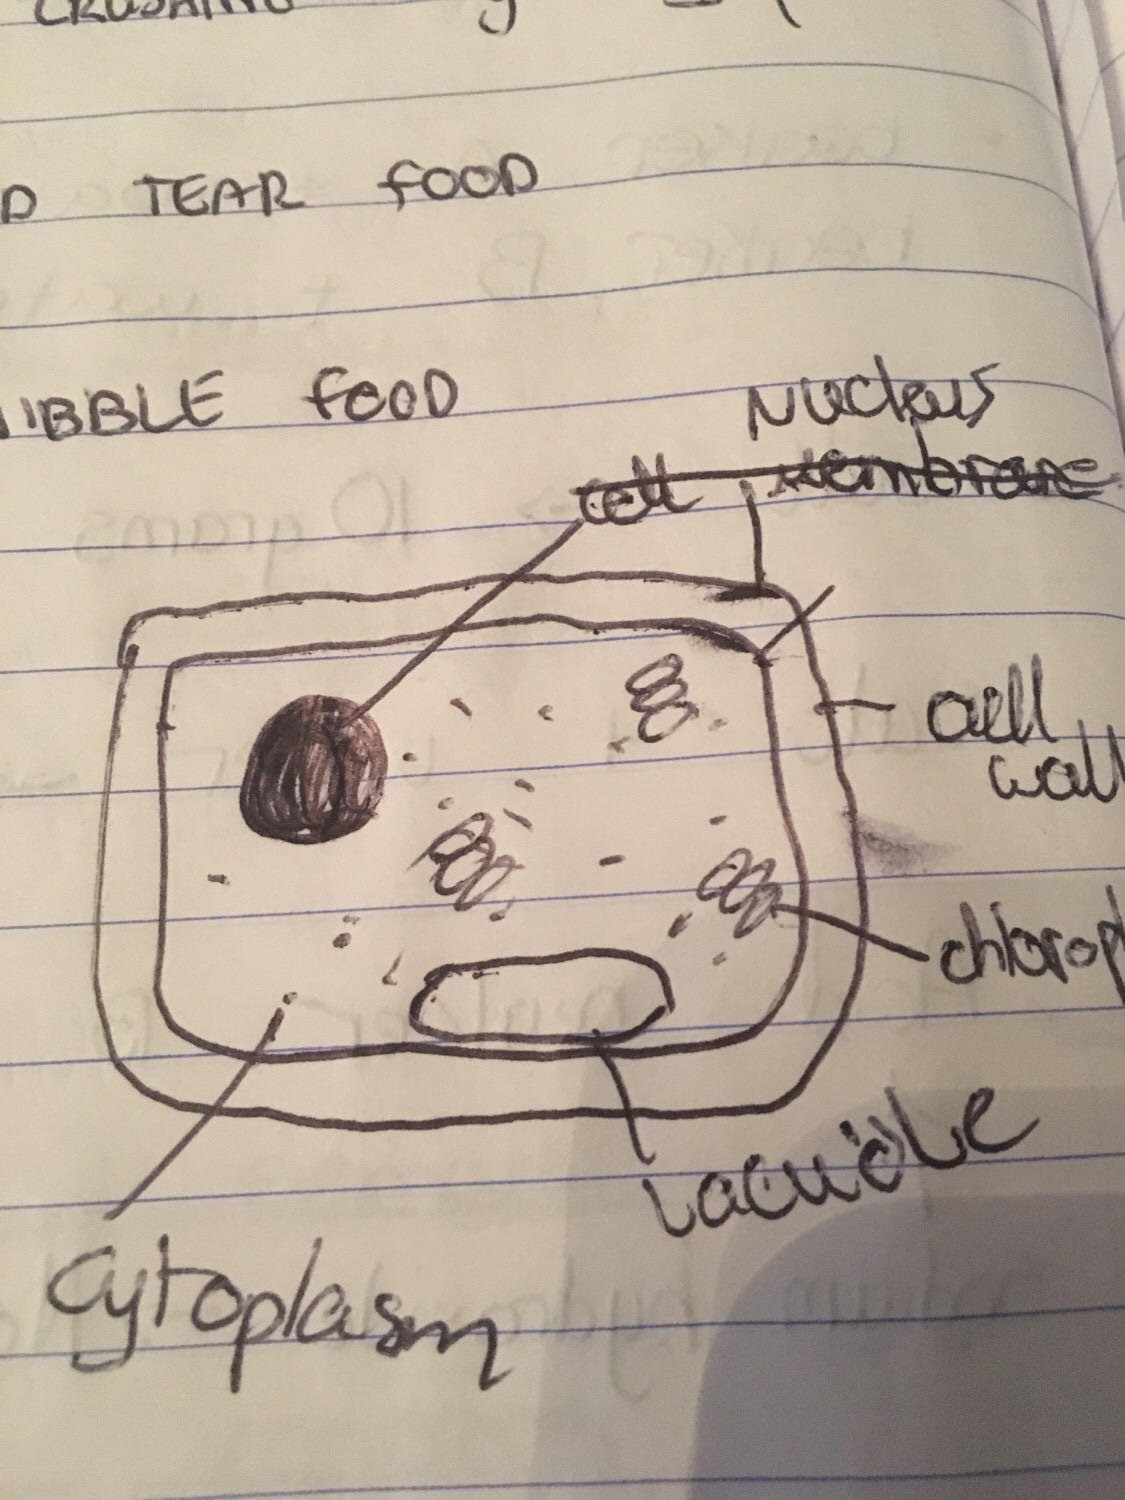 CRUSHING
D TEAR FOOD
IBBLE FOOD
Nucleus
cell membrane
cell
wall
chlorop
vacuole
cytoplasm